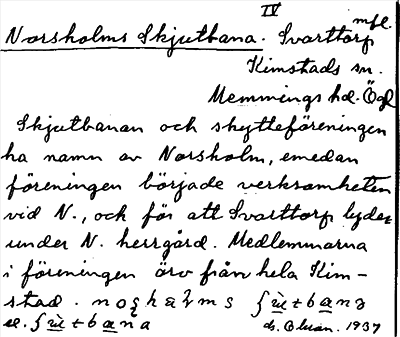 IV
Norsholms Skjutbana. Svarttorp mfl.
Kimstads sn.
Memmings hd. Ögl
Skjutbanan och skytteföreningen
ha namn av Norsholm, emedan
föreningen började verksamheten
vid N., och för att Svarttorp lyder
under N. herrgård. Medlemmarna
i föreningen äro från hela Kim-
stad.
el.
1937